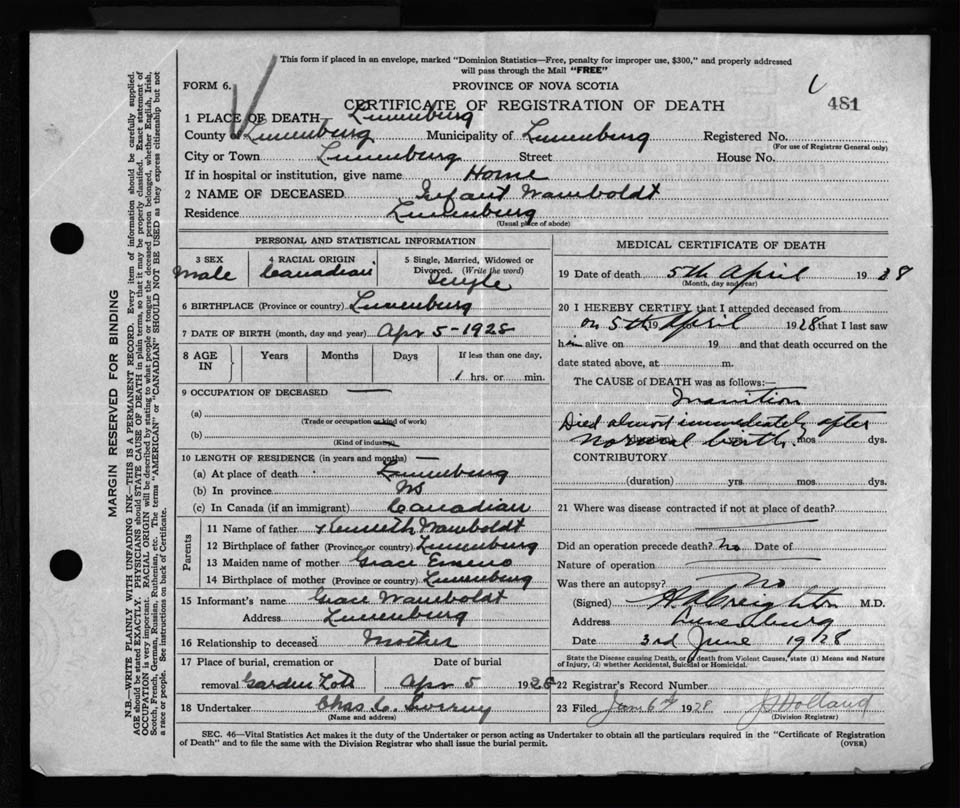 This form if placed in an envelope, marked "Dominion Statistics—Free, penalty for improper use, $300," and properly addressed
will pass through the Mail "FREE"
FORM 6.
PROVINCE OF NOVA SCOTIA
CERTIFICATE OF REGISTRATION OF DEATH
481
1 PLACE OF DEATH Lunenburg
County of Lunenburg Municipality of Lunenburg Registered No.
(For use of Registrar General only)
City or Town Lunenburg Street House No.
If in hospital or institution, give name Home
2 NAME OF DECEASED Infant Wamboldt
Residence Lunenburg
(Usual place of abode)
PERSONAL AND STATISTICAL INFORMATION
3 SEX 4 RACIAL ORIGIN 5 Single, Married, Widowed or
Divorced. (Write the word)
Male Canadian Single
6 BIRTHPLACE (Province or country) Lunenburg
7 DATE OF BIRTH (month, day and year) Apr 5-1928
8 AGE IN Years Months Days If less than one day,
1 hrs. or min.
9 OCCUPATION OF DECEASED
(a)
(Trade or occupation or kind of work)
(b)
(Kind of industry)
10 LENGTH OF RESIDENCE (in years and months)
(a) At place of death Lunenburg
(b) In province NS
(c) In Canada (if an immigrant) Canadian
Parents
11 Name of father Kenneth Wamboldt
12 Birthplace of father (Province or country) Lunenburg
13 Maiden name of mother Grace
14 Birthplace of mother (Province or country) Lunenburg
15 Informant's name Grace Wamboldt
Address Lunenburg
16 Relationship to deceased Mother
17 Place of burial, cremation or Date of burial
removal Garden Lots Apr 5 1928
18 Undertaker Chas. C.
(Name and address)
MEDICAL CERTIFICATE OF DEATH
19 Date of death 5th April 1928
(Month, day and year)
20 I HEREBY CERTIFY that I attended deceased from
on 5th 19 April 1928 that I last saw
him alive on 19 and that death occurred on the
date stated above, at m.
The CAUSE of DEATH was as follows:—
Inanition
Died almost immediately after
normal birth. mos dys.
CONTRIBUTORY
(duration) yrs mos dys.
21 Where was disease contracted if not at place of death?
Did an operation precede death? No Date of
Nature of operation
Was there an autopsy? No
(Signed) Creighton M.D.
Address Lunenburg
Date 3rd June 1928
State the Disease causing Death, or in death from Violent Causes, state (1) Means and Nature
of Injury, (2) whether Accidental, Suicidal or Homicidal.
22 Registrar's Record Number
23 Filed June 6th 1928 Holland
(Division Registrar)
SEC. 46—Vital Statistics Act makes it the duty of the Undertaker or person acting as Undertaker to obtain all the particulars required in the "Certificate of Registration
of Death" and to file the same with the Division Registrar who shall issue the burial permit.
(OVER)
MARGIN RESERVED FOR BINDING
N.B.—WRITE PLAINLY WITH UNFADING INK—THIS IS A PERMANENT RECORD. Every item of information should be carefully supplied.
AGE should be stated EXACTLY. PHYSICIANS should STATE CAUSE OF DEATH in plain terms, so that it may be properly classified. Exact statement of
OCCUPATION is very important. RACIAL ORIGIN will be described by stating to what people or tongue the deceased person belonged, whether English, Irish,
Scotch, French, German, Russian, Ruthenian, etc. The terms "AMERICAN" or "CANADIAN" SHOULD NOT BE USED as they express citizenship but not
a race or people. See instructions on back of Certificate.